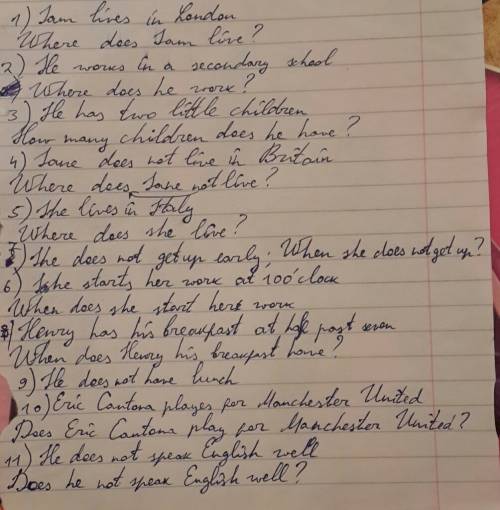 1) Sam lives in London
Where does Sam live?
2) He works in a secondary school
Where does he work?
3) He has two little children
How many children does he have?
4) Jane does not live in Britain
Where does Jane not live?
5) She lives in Italy
Where does she live?
7) She does not get up early. When she does not get up?
6) She starts her work at 10 o'clock
When does she start here work
8) Henry has his breakfast at past seven
When does Henry his breakfast have?
9) He does not have lunch
10) Eric Cantona playes for Manchester United
Does Eric Cantona play for Manchester United?
11) He does not speak English well
Does he not speak English well?